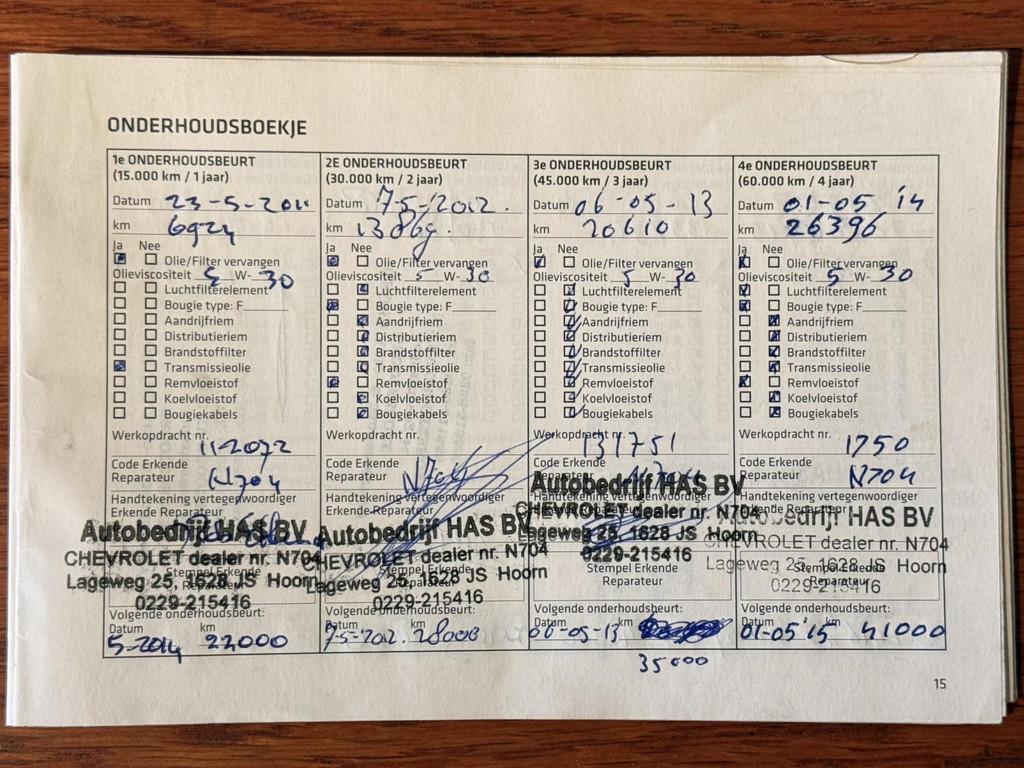 ONDERHOUDSBOEKJE
1e ONDERHOUDSBEURT
(15.000 km / 1 jaar)
Datum 23-5-2011
km 6924
Ja Nee
Olie/Filter vervangen
Olieviscositeit 5 W-30
Luchtfilterelement
Bougie type: F
Aandrijfriem
Distributieriem
Brandstoffilter
Transmissieolie
Remvloeistof
Koelvloeistof
Bougiekabels
Werkopdracht nr.
11-2072
Code Erkende
Reparateur N704
Handtekening vertegenwoordiger
Erkende Reparateur
Autobedrijf HAS BV
CHEVROLET dealer nr. N704
Lageweg 25, 1628 JS Hoorn
0229-215416
Stempel Erkende
Reparateur
Volgende onderhoudsbeurt:
Datum km
22000
2E ONDERHOUDSBEURT
(30.000 km / 2 jaar)
Datum 7-5-'2012.
km 13869.
Ja Nee
Olie/Filter vervangen
Olieviscositeit 5 W-30
Luchtfilterelement
Bougie type: F
Aandrijfriem
Distributieriem
Brandstoffilter
Transmissieolie
Remvloeistof
Koelvloeistof
Bougiekabels
Werkopdracht nr.
Code Erkende
Reparateur N704
Handtekening vertegenwoordiger
Erkende Reparateur
Autobedrijf HAS BV
CHEVROLET dealer nr. N704
Lageweg 25, 1628 JS Hoorn
0229-215416
Volgende onderhoudsbeurt:
Datum km
7-5-2012. 28000
3e ONDERHOUDSBEURT
(45.000 km / 3 jaar)
Datum 06-05-13
km 20610
Ja Nee
Olie/Filter vervangen
Olieviscositeit 5 W-30
Luchtfilterelement
Bougie type: F
Aandrijfriem
Distributieriem
Brandstoffilter
Transmissieolie
Remvloeistof
Koelvloeistof
Bougiekabels
Werkopdracht nr.
131751
Code Erkende
Reparateur N704
Autobedrijf HAS BV
CHEVROLET dealer nr. N704
Lageweg 25, 1628 JS Hoorn
0229-215416
Stempel Erkende
Reparateur
Volgende onderhoudsbeurt:
Datum km
06-05-13
35000
4e ONDERHOUDSBEURT
(60.000 km / 4 jaar)
Datum 01-05 '14
km 26396
Ja Nee
Olie/Filter vervangen
Olieviscositeit 5 W-30
Luchtfilterelement
Bougie type: F
Aandrijfriem
Distributieriem
Brandstoffilter
Transmissieolie
Remvloeistof
Koelvloeistof
Bougiekabels
Werkopdracht nr.
1750
Code Erkende
Reparateur N704
Handtekening vertegenwoordiger
Erkende Reparateur
Autobedrijf HAS BV
CHEVROLET dealer nr. N704
Lageweg 25, 1628 JS Hoorn
0229-215416
Stempel Erkende
Reparateur
Volgende onderhoudsbeurt:
Datum km
01-05'15 41000
15